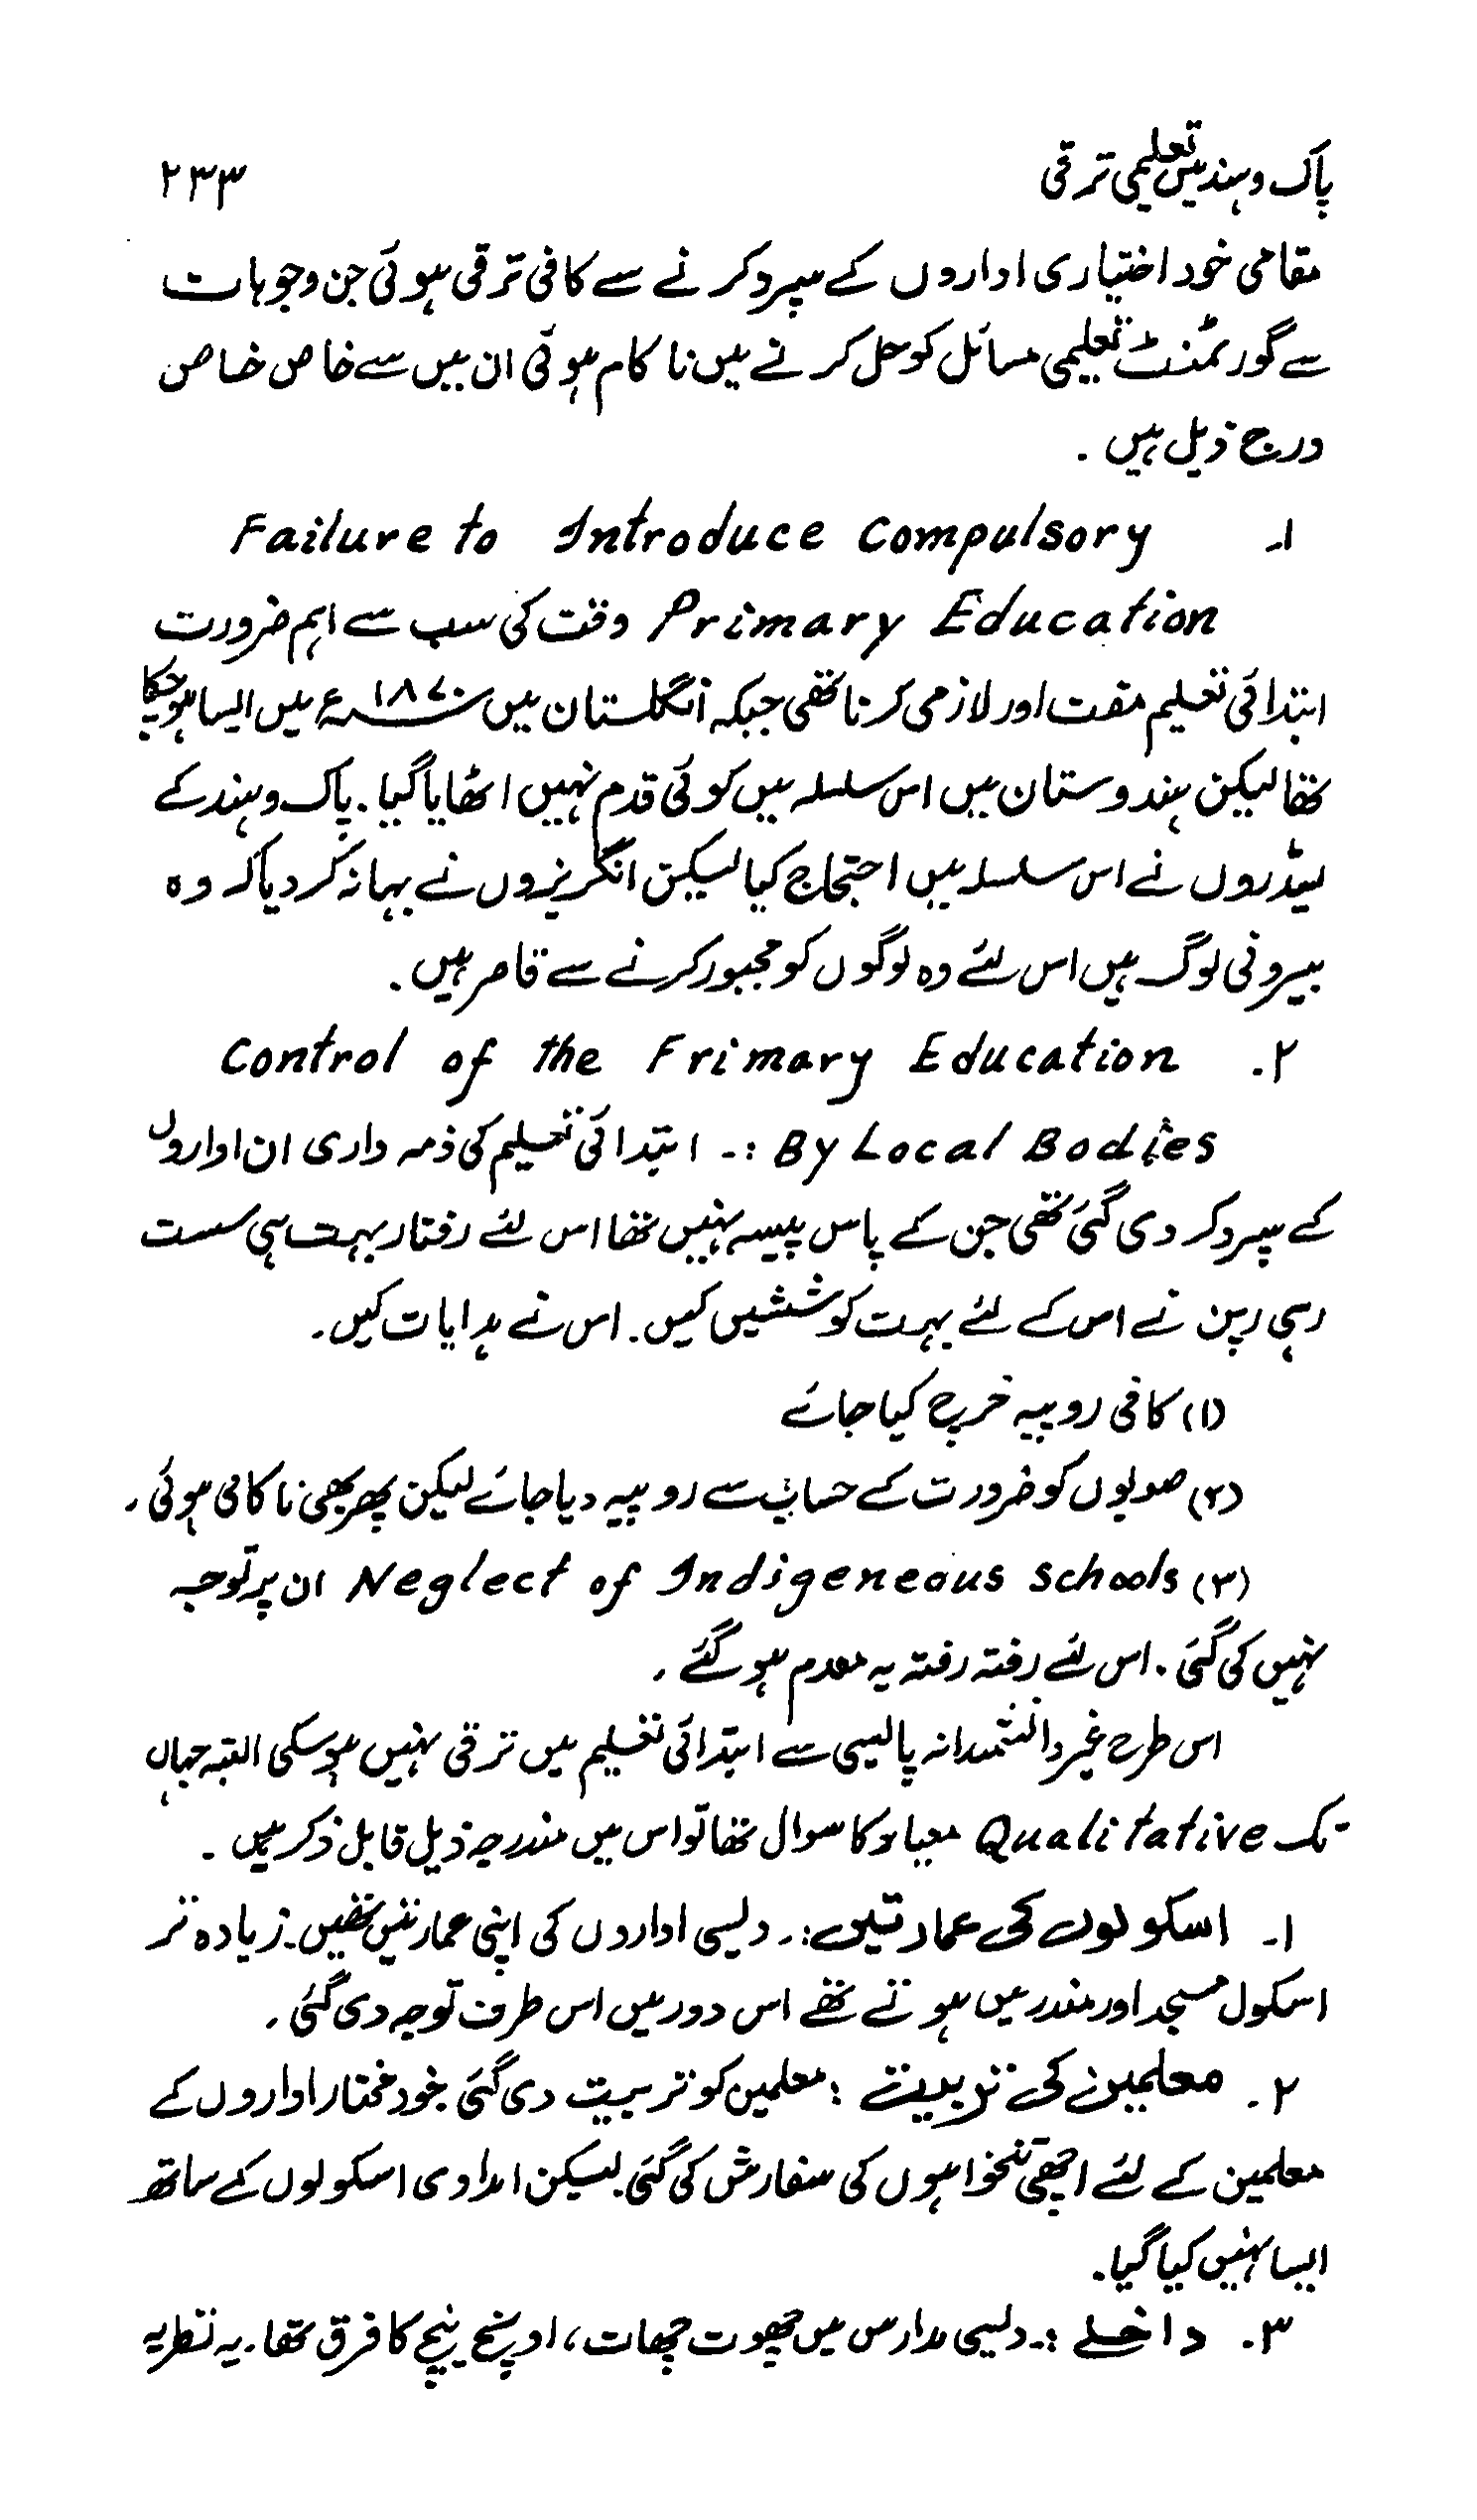 پاک و ہند میں تعلیمی ترقی ۲۳۳
مقامی خود اختیاری اداروں کے سپرد کرنے سے کافی ترقی ہوئی جن وجوہات
سے گورنمنٹ تعلیمی مسائل کو حل کرنے میں ناکام ہوئی ان میں سے خاص خاص
درج ذیل ہیں ۔
۱۔ Failure to Introduce Compulsory
Primary Education وقت کی سب سے اہم ضرورت
ابتدائی تعلیم مفت اور لازمی کرنا تھی جبکہ انگلستان میں ۱۸۷۰ء میں ایسا ہو چکا
تھا لیکن ہندوستان میں اس سلسلہ میں کوئی قدم نہیں اٹھایا گیا ۔ پاک و ہند کے
لیڈروں نے اس سلسلہ میں احتجاج کیا لیکن انگریزوں نے بہانہ کر دیا کہ وہ
بیرونی لوگ ہیں اس لئے وہ لوگوں کو مجبور کرنے سے قاصر ہیں ۔
۲۔ Control of the Frimary Education
By Local Bodies :۔ ابتدائی تعلیم کی ذمہ داری ان اداروں
کے سپرد کر دی گئی تھی جن کے پاس پیسہ نہیں تھا اس لئے رفتار بہت ہی سست
رہی رپن نے اس کے لئے بہت کوششیں کیں ۔ اس نے ہدایات کیں ۔
(۱) کافی روپیہ خرچ کیا جائے
(۲) صوبوں کو ضرورت کے حساب سے روپیہ دیا جائے لیکن پھر بھی ناکامی ہوئی ۔
(۳) Neglect of Indigeneous Schools ان پر توجہ
نہیں کی گئی ۔ اس لئے رفتہ رفتہ یہ معدم ہو گئے ۔
اس طرح غیر دانشمندانہ پالیسی سے ابتدائی تعلیم میں ترقی نہیں ہو سکی البتہ جہاں
تک Qualitative معیار کا سوال تھا تو اس میں مندرجہ ذیل قابل ذکر ہیں ۔
۱۔ اسکولوں کی عمارتیں :۔ دیسی اداروں کی اپنی عمارتیں نہیں تھیں ۔ زیادہ تر
اسکول مسجد اور مندر میں ہوتے تھے اس دور میں اس طرف توجہ دی گئی ۔
۲۔ معلمین کی تربیت : معلمین کو تربیت دی گئی خود مختار اداروں کے
معلمین کے لئے اچھی تنخواہوں کی سفارش کی گئی لیکن امدادی اسکولوں کے ساتھ
ایسا نہیں کیا گیا ۔
۳۔ داخلے :۔ دیسی مدارس میں چھوت چھات ، اونچ نیچ کا فرق تھا ۔ یہ نظریہ